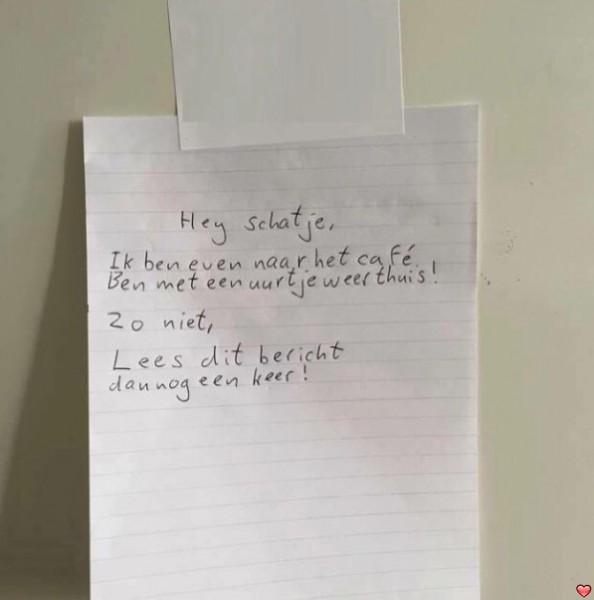 Hey schatje,
Ik ben even naar het café.
Ben met een uurtje weer thuis!
Zo niet,
Lees dit bericht
dan nog een keer!